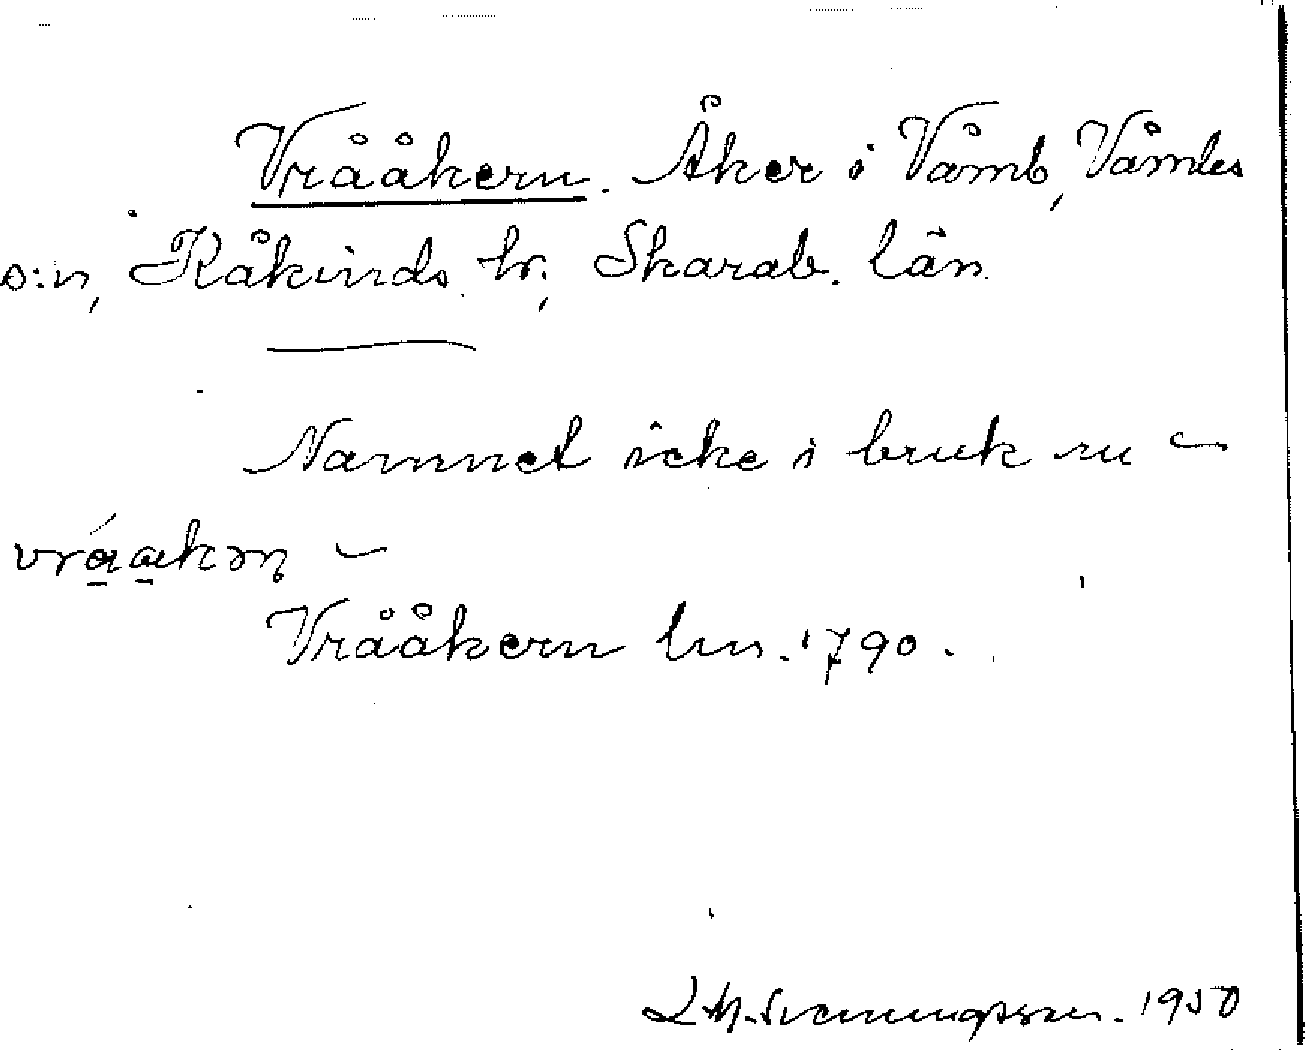 Vrååkern. Åker i Våmb, Våmbs
s:n, Kåkinds hr., Skarab. län
Namnet icke i bruk nu –
–
Vrååkern lm. 1790.
L. M. Svenungsson. 1950